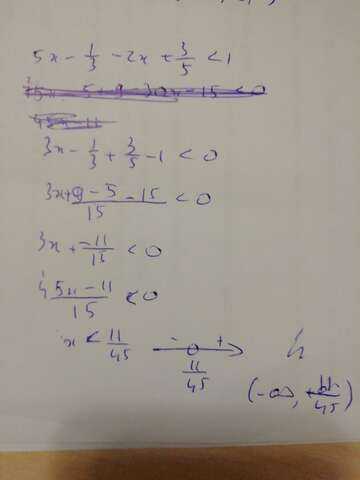 5x - 1/3 - 2x + 3/5 < 1
3x - 1/3 + 3/5 - 1 < 0
3x + 9 - 5 - 15 / 15 < 0
3x + -11/15 < 0
45x - 11 / 15 < 0
x < 11/45 - + 11/45
(-∞, 11/45)